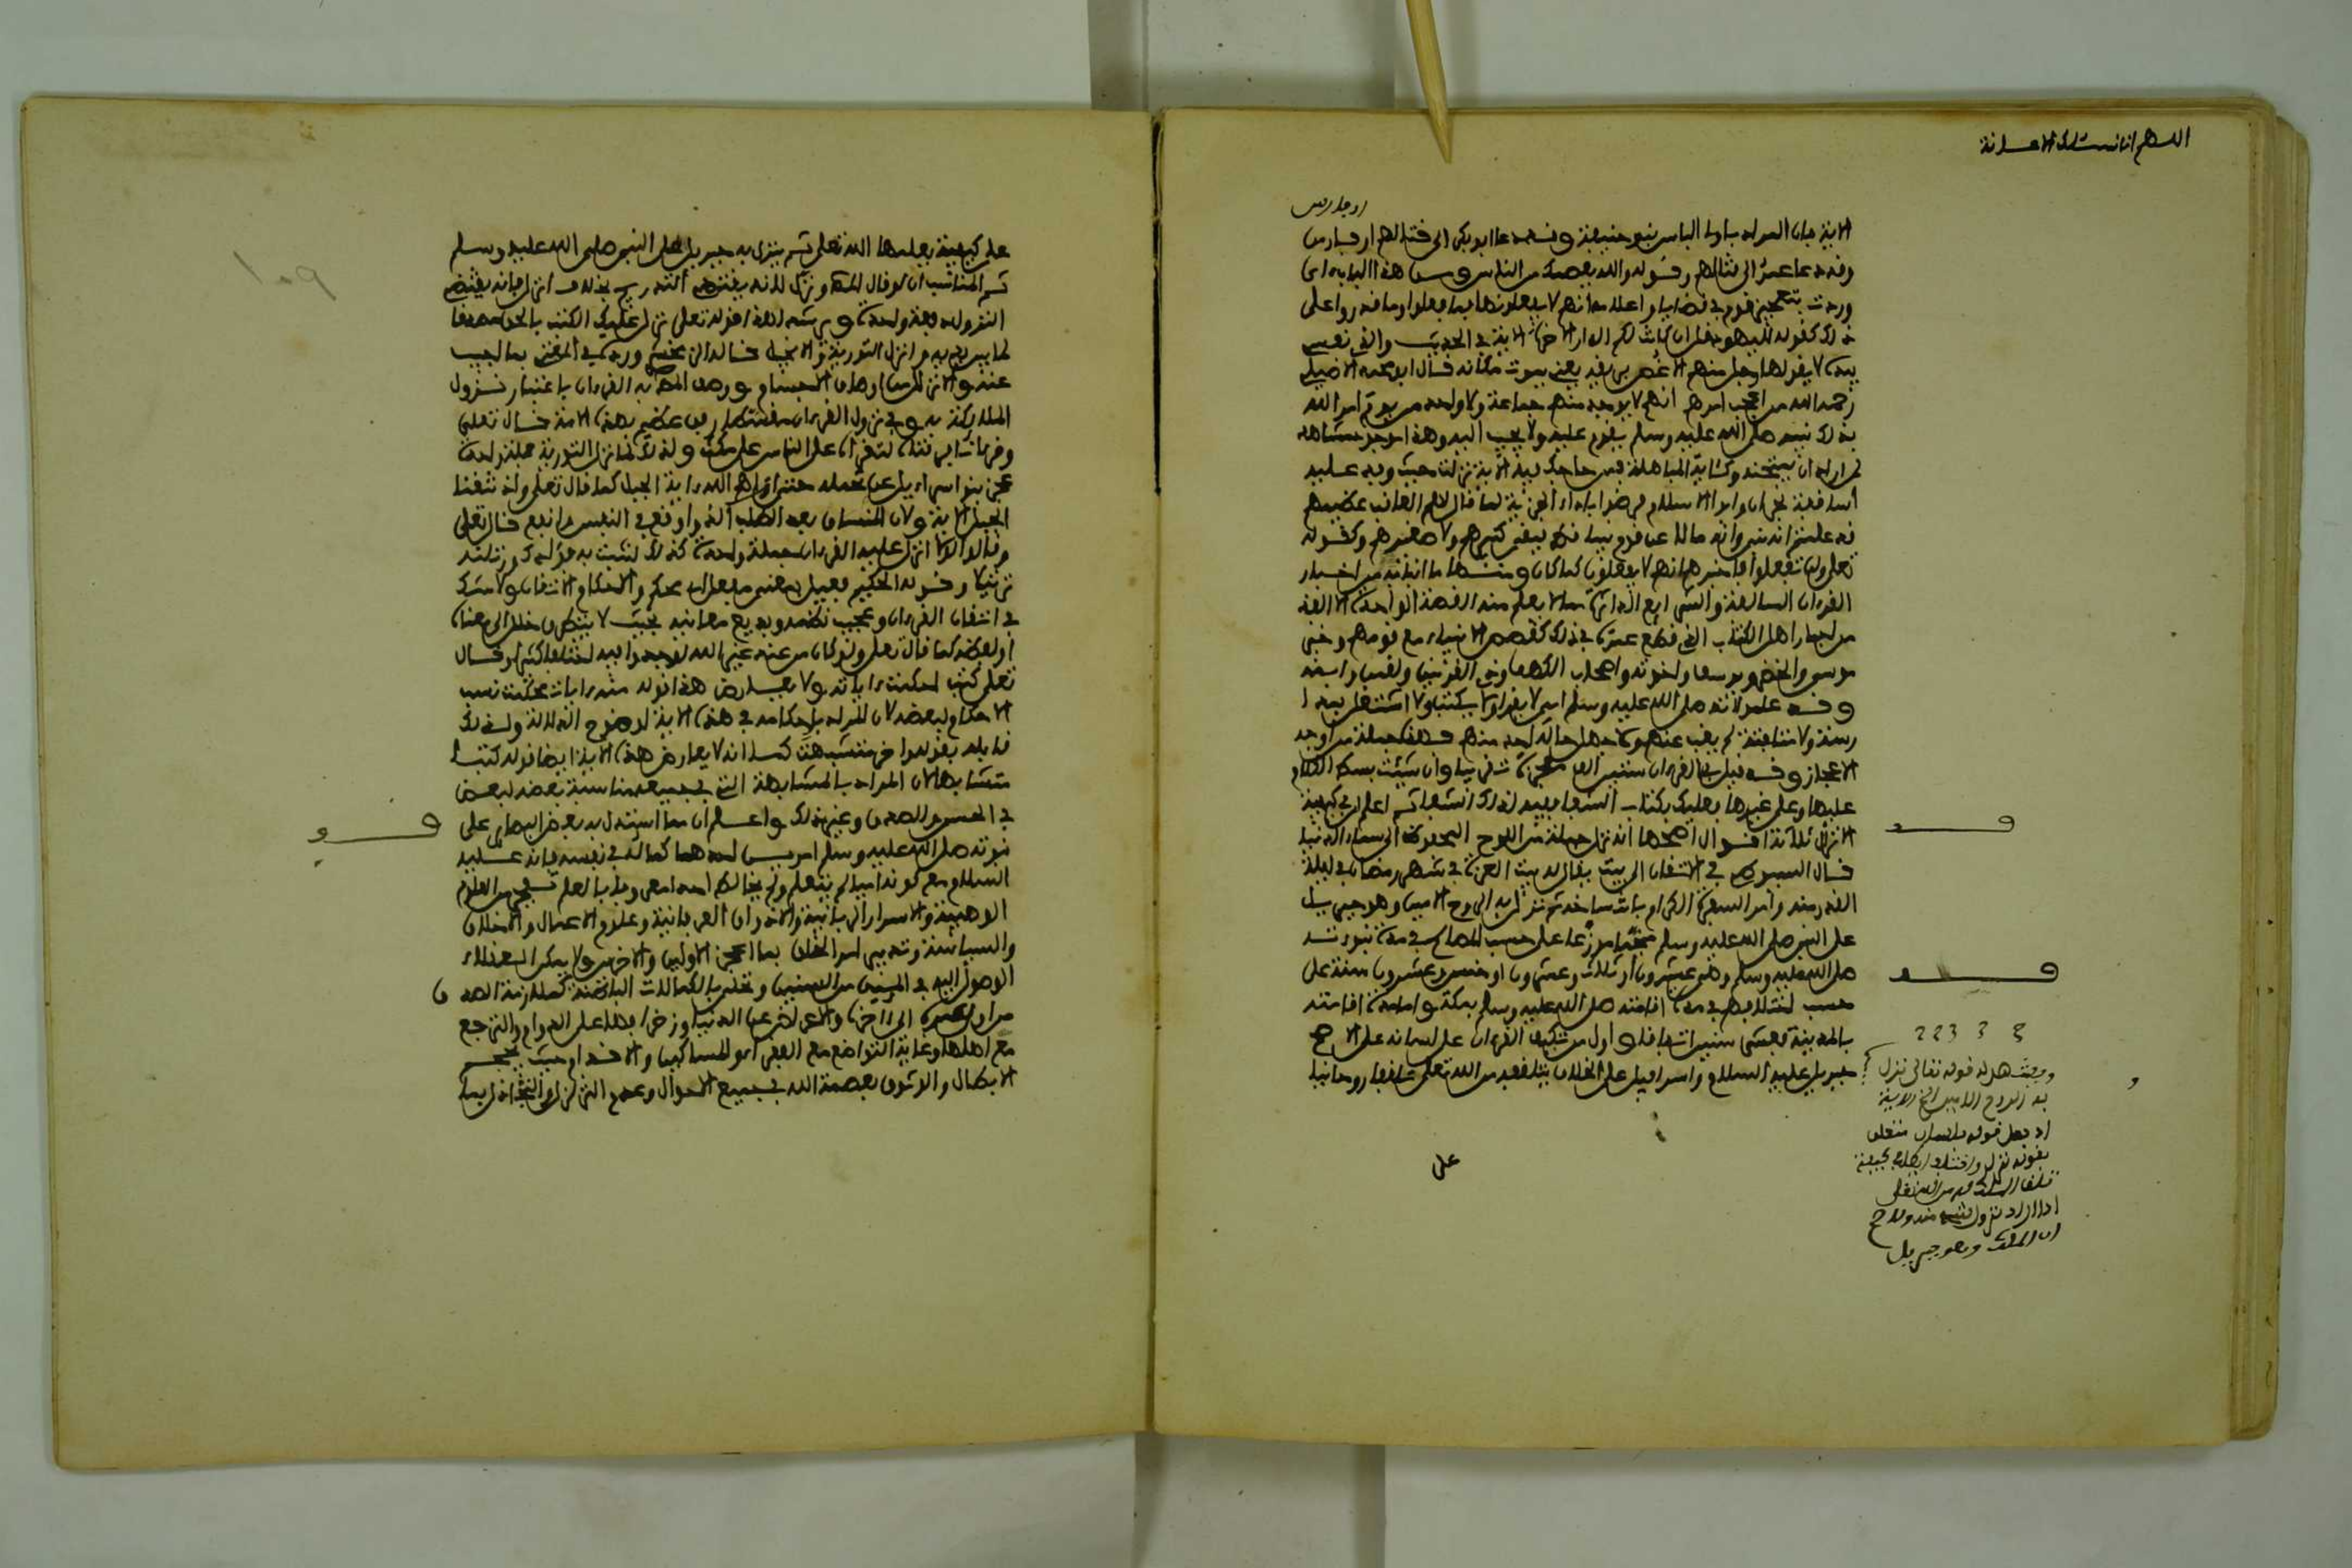 اللهم انا نسئلك الاعانة
او فارس
الاية فان المراد باولى الباس بنو حنيفة وقد دعا ابو بكر الى قتالهم او فارس
وقد دعا عمر الى قتالهم وقوله والله يعصمك من الناس ومن هذا الباب اى
وردت بتعجيز قوم فى قضايا واعلامهم انهم لا يفعلونها فما فعلوا وما قدروا على
ذلك كقوله لليهود قل ان كانت لكم الدار الاخرة الاية فى الحديث والذى نفسى
بيده لا يقولها رجل منهم الا غص بريقه يعنى يموت مكانه قال ابو محمد الاصيلى
رحمه الله من اعجب امرهم انهم لا يوجد منهم جماعة ولا واحد من يوم امر الله
بذلك نبيه صلى الله عليه وسلم يقدم عليه ولا يجيب اليه وهذا موجود مشاهد
لمن اراد ان يمتحنه وكاية المباهلة فمن حاجك فيه الاية نزلت حيث وفد عليه
اساقفة نجران وابوا الاسلام فرضوا باداء الجزية لما قال لهم العاقب عظيمهم
قد علمتم انه نبى وانه ما لاعن قوم نبيا قط فبقى كبيرهم ولا صغيرهم وكقوله
تعلى ولن تفعلوا فاخبرهم انهم لا يفعلون كما كان ومنها ما انبا به من اخبار
القرون السالفة والشرايع الداثرة مما لا يعلم منه القصة الواحدة الا الفذ
من احبار اهل الكتاب الذى قطع عمره فى ذلك كقصص الانبياء مع قومهم وخبر
موسى والخضر ويوسف واخوته واصحاب الكهف وذى القرنين ولقمن وابنه
وقد علم انه صلى الله عليه وسلم امى لا يقرا ولا يكتب ولا اشتغل بمدا
رسة ولا مثافنة لم يغب عنهم ولا جهل حاله احد منهم فهذه جملة من اوجه
الاعجاز وقد قيل فى القرءان ستين الف معجزة ونيفا وان شئت بسط الكلام
عليها وعلى غيرها فعليك بكتاب الشفا ففيه لذلك الشفا ثم اعلم ان فى كيفية
الانزال ثلاثة اقوال اصحها انه نزل جملة من اللوح المحفوظ الى سماء الدنيا
قال السيوطى فى الاتقان الى بيت يقال له بيت العزة فى شهر رمضان فى ليلة
القدر منه وامر السفرة الكرام بانتساخه ثم نزل به الروح الامين وهو جبريل
على النبى صلى الله عليه وسلم منجما موزعا على حسب المصالح فى مدة نبوته
صلى الله عليه وسلم وهى عشرون او ثلاث وعشرون او خمس وعشرون سنة على
حسب اختلافهم فى مدة اقامته صلى الله عليه وسلم بمكة واما مدة اقامته
بالمدينة فعشر سنين اتفاقا واول من تكلم القرءان على لسانه على الاصح
جبريل عليه السلام واسرافيل على الخلاف بتلقفه من الله تعلى تلقفا روحانيا
ويشهد له قوله تعالى نزل
به الروح الامين الخ الاية
اذ جعل قوله بلسان متعلق
بقوله نزل
تلقاه الملك من الله تعلى
اذا اراد نزول شىء منه
ان الملك وهو جبريل
على
على كيفية يعلمها الله تعلى ثم ينزل به جبريل على النبى صلى الله عليه وسلم
ثم المناسب ان لو قال المص ونزل لانه يقتضى التدريج بخلاف انزل فانه يقتضى
النزول دفعة واحدة ويرشد لهذا قوله تعلى نزل عليك الكتب بالحق مصدقا
لما بين يديه وانزل التورية والانجيل قاله الزمخشرى ورد فى المغنى بما اجيب
عنه والانزال من اوصاف الاجسام ووصف المص به القرءان باعتبار نزول
الملائكة به وفى نزول القرءان مفرقا رفق عظيم بهذه الامة قال تعلى
وقرءانا فرقنه لتقراه على الناس على مكث ولذلك لما نزل التورية جملة واحدة
عجز بنو اسراءيل عن تحمله حتى اراهم الله ءاية الجبل كما قال تعلى واذ نتقنا
الجبل الاية ولان المنساق بعد الطلب الذ واوقع فى النفس وانفع قال تعلى
وقالوا لولا انزل عليه القرءان جملة واحدة كذلك لنثبت به فؤادك ورتلنه
ترتيلا وقوله الحكيم فعيل بمعنى مفعل اى محكم والاحكام الاتقان ولا شك
فى اتقان القرءان وعجيب نظمه وبديع معانيه بحيث لا يتطرق خلل الى معناه
او لفظه كما قال تعلى ولو كان من عند غير الله لوجدوا فيه اختلافا كثيرا وقال
تعلى كتب احكمت ءايته ولا يعارض هذا قوله منه ءايات محكمت نسب
الاحكام لبعضه لان المراد باحكامه فى هذه الاية لوضوح الدلالة ولذلك
قابله بقوله واخر متشبهت كما انه لا يعارض هذه الاية ايضا قوله كتبا
متشابها لان المراد بالمتشابهة التى فى جميعه مناسبة بعضه لبعض
فى الحسن والصدق وغير ذلك واعلم ان مما استدل به بعض البصائر على
نبوته صلى الله عليه وسلم امرين احدهما كماله فى نفسه فانه عليه
السلام مع كونه اميا لم يتعلم ولم يخالط احدا معروفا بالعلم من العلوم
الوهبية والاسرار الربانية والاذواق العرفانية وعلوم الاعمال والاخلاق
والسياسة وتدبير امر الخلق بما اعجز الاولين والاخرين ولا يمكن العقلاء
الوصول اليه فى المئين من السنين وتحلى بالكمالات الباطنة كملازمة الصدق
من اول عمره الى ءاخره والاعراض عن الدنيا وزخرفها على الدوام والترفع
مع اهلها وغاية التواضع مع الفقراء والمساكين والاقدام حيث يحجم
الابطال والوثوق بعصمة الله فى جميع الاحوال وعدم التزلزل